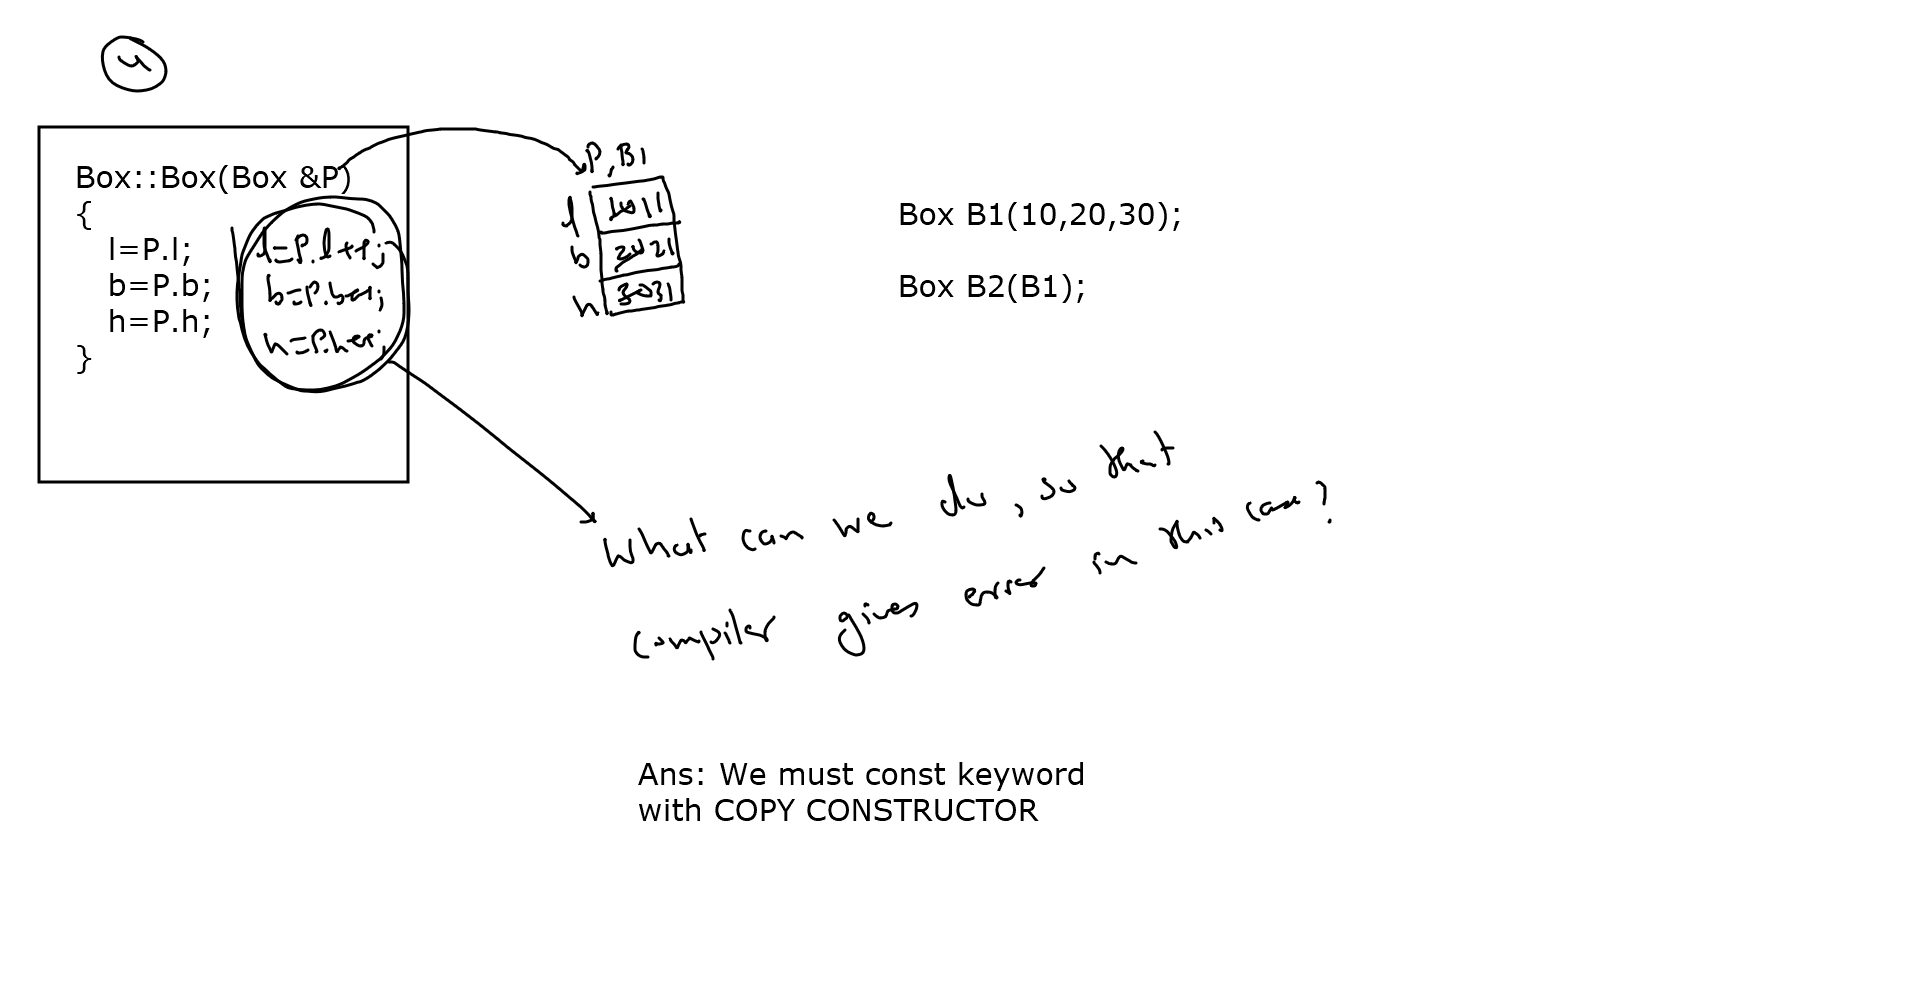 4
Box::Box(Box &P)
{
l=P.l;
b=P.b;
h=P.h;
}
l=P.l++;
b=P.b++;
h=P.h++;
P, B1
l 10 11
b 20 21
h 30 31
Box B1(10,20,30);
Box B2(B1);
What can we do, so that
compiler gives error in this case?
Ans: We must const keyword
with COPY CONSTRUCTOR